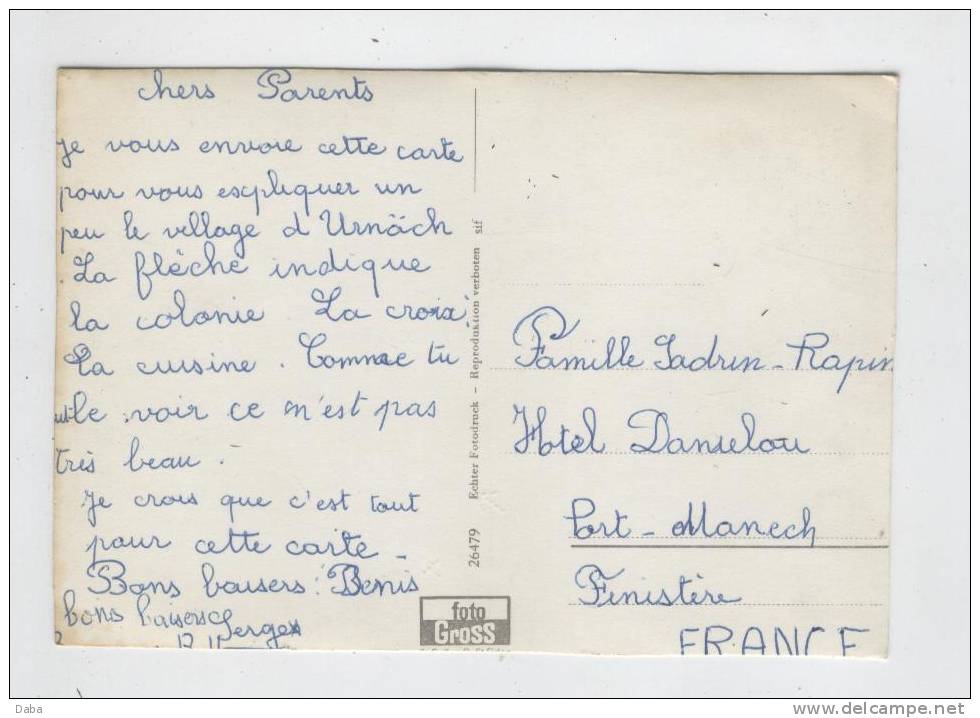 chers Parents
Je vous envoie cette carte
pour vous expliquer un
peu le village d'Urnäch
La flèche indique
la colonie La croix
La cuisine. Comme tu
le voir ce n'est pas
très beau.
Je crois que c'est tout
pour cette carte -
Bons baisers: Denis
bons baisers
Serge
26479 Echter Fotodruck - Reproduktion verboten sif
foto
Gross
Famille Jadrin-Rapin
Hotel Danielou
Port-Manech
Finistère
FRANCE
Daba
www.delcampe.net